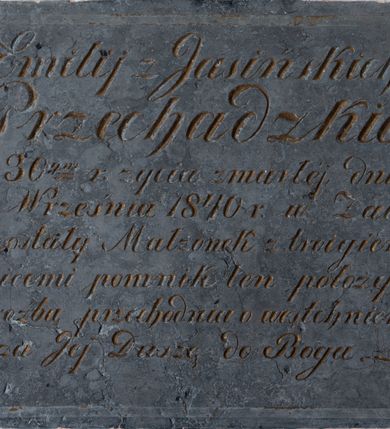 Emilij z Jasińskich
Przechadzkie
30 ym r. życia zmarłéj dni
Września 1840 r. w Za
ostały Małżonek z troygie
iécmi pomnik ten położy
rozba przechodnia o westchnie
za Jéj Duszę do Boga